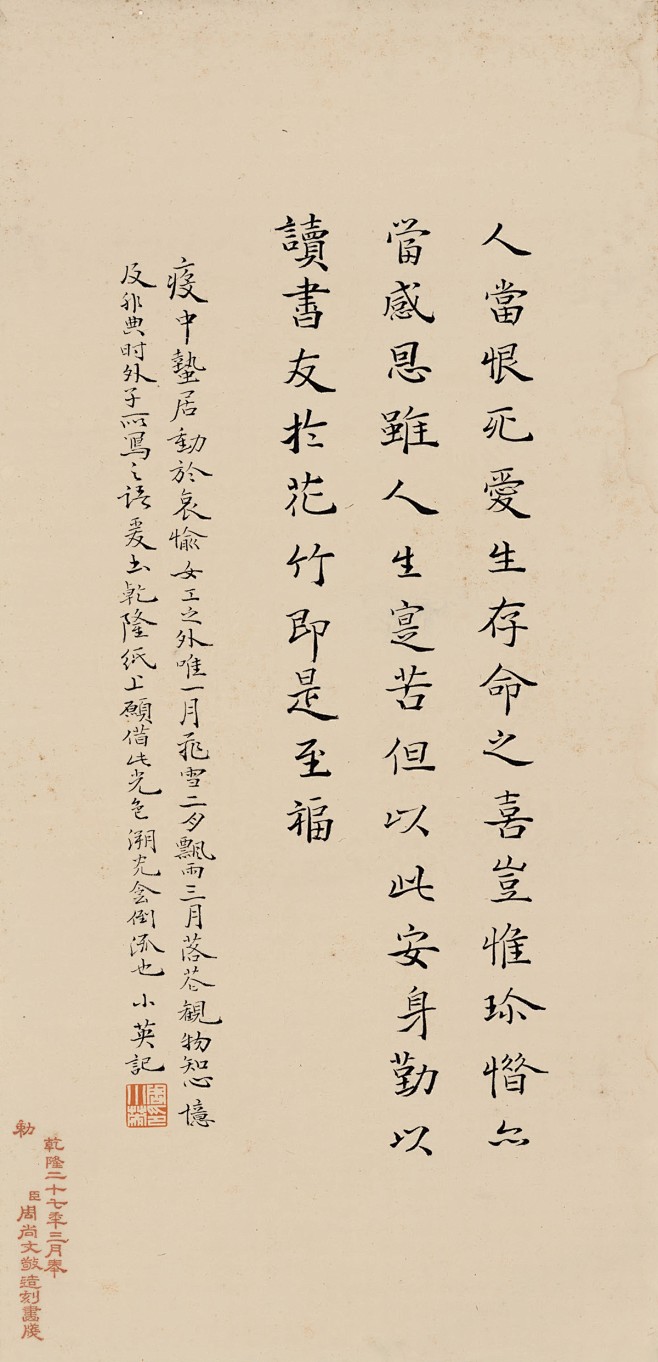 人當恨死愛生存命之喜豈惟珎惜亦
當感恩雖人生寔苦但以此安身勤以
讀書友於花竹即是至福
疫中蟄居動於哀愉女工之外唯一月飛雪二月飄雨三月落花觀物知心憶
及非典时外子所寫之語爰书乾隆紙上願借此光色溯光会倒流也小英記
乾隆二十七年三月奉
勅
臣周尚文敬造刻畵牋